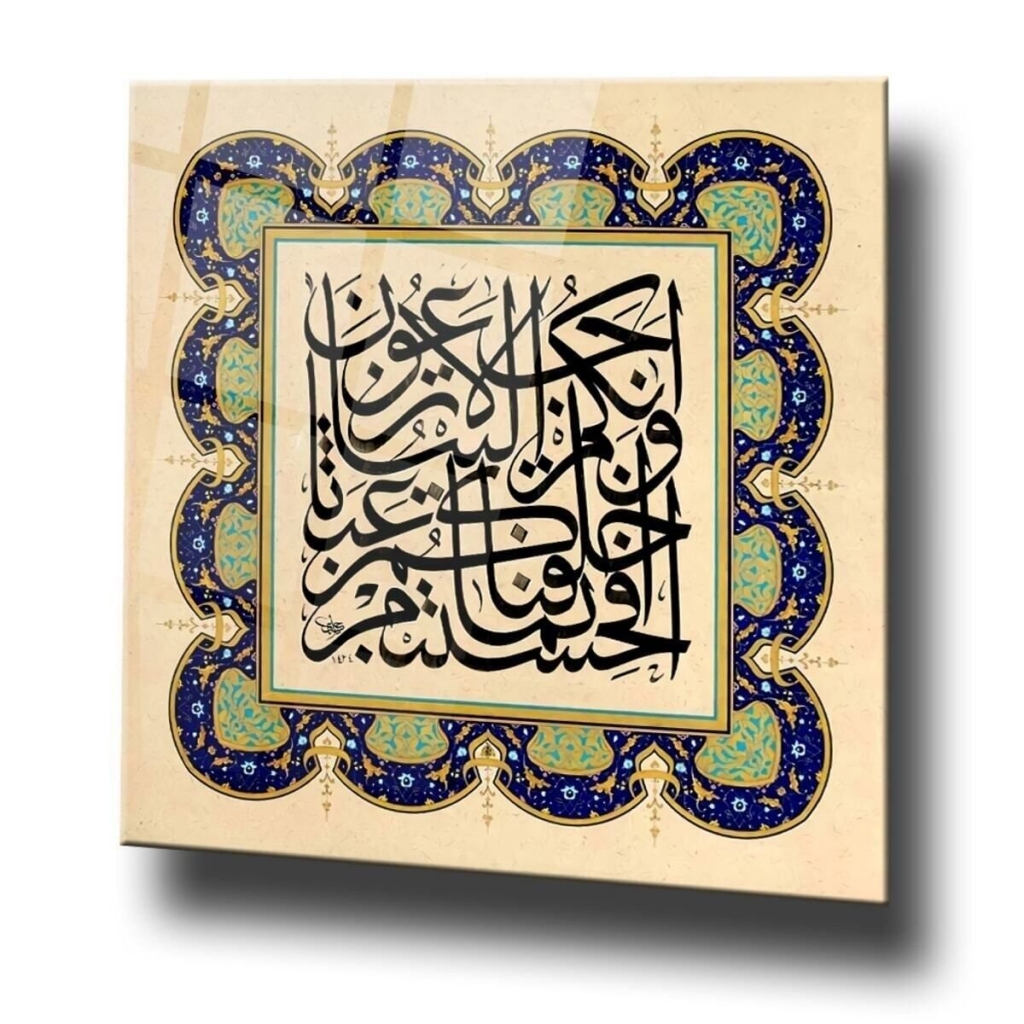 افحسبتم
انما خلقناكم عبثا
وانكم الينا لا ترجعون
١٤٢٤